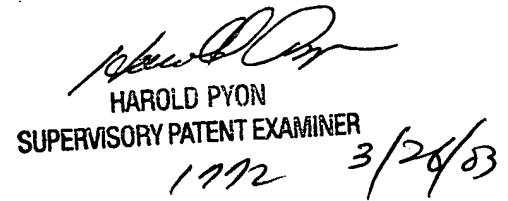 Harold Pyon
HAROLD PYON
SUPERVISORY PATENT EXAMINER
1772 3/26/03